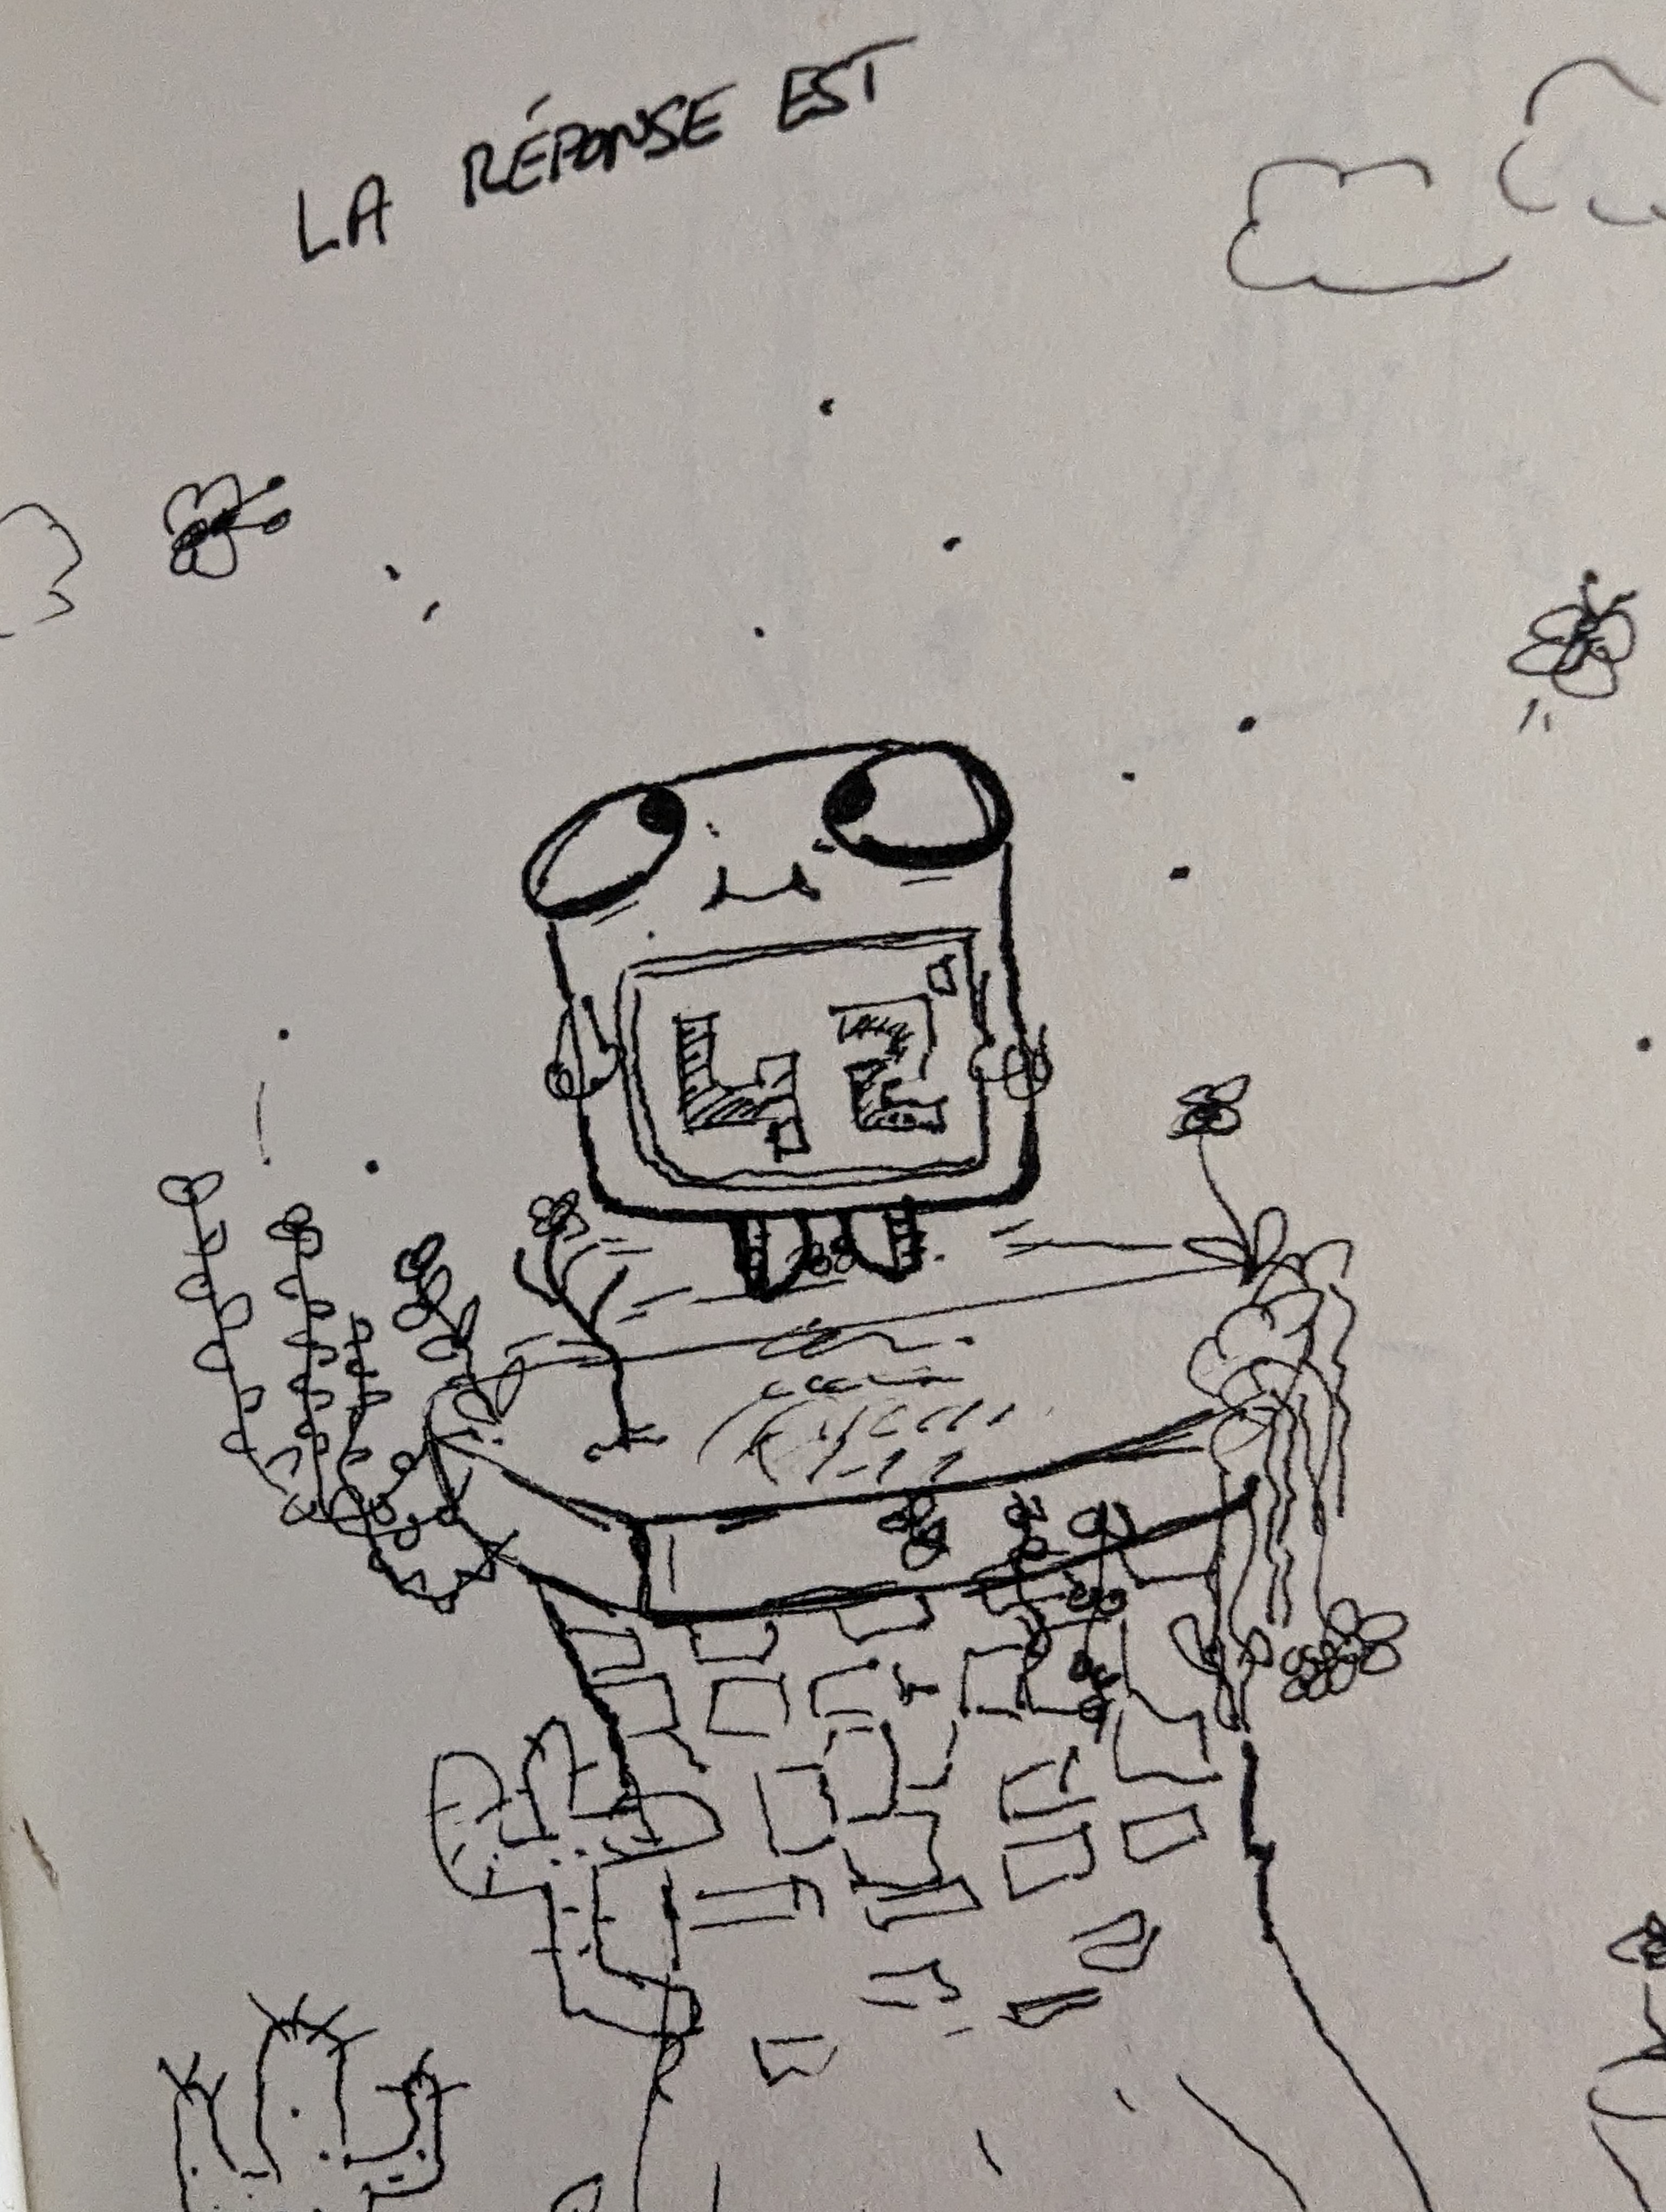 LA RÉPONSE EST
42